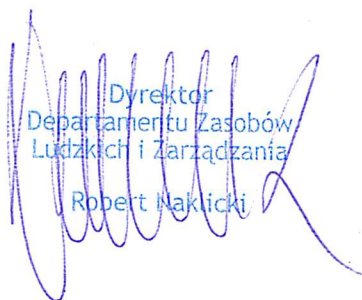 Dyrektor
Departamentu Zasobów
Ludzkich i Zarządzania
Robert Naklicki